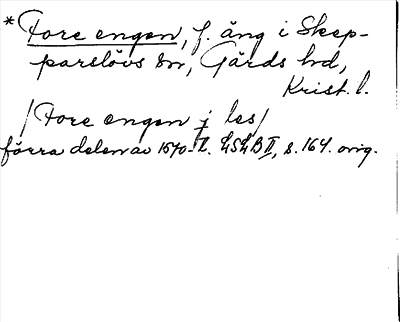 * Fore engen, f. äng i Skep-
parslövs sn, Gärds hd,
Krist. l.
/Fore engen j les/
förra delen av 1570-t. LSLB II, s. 164. orig.